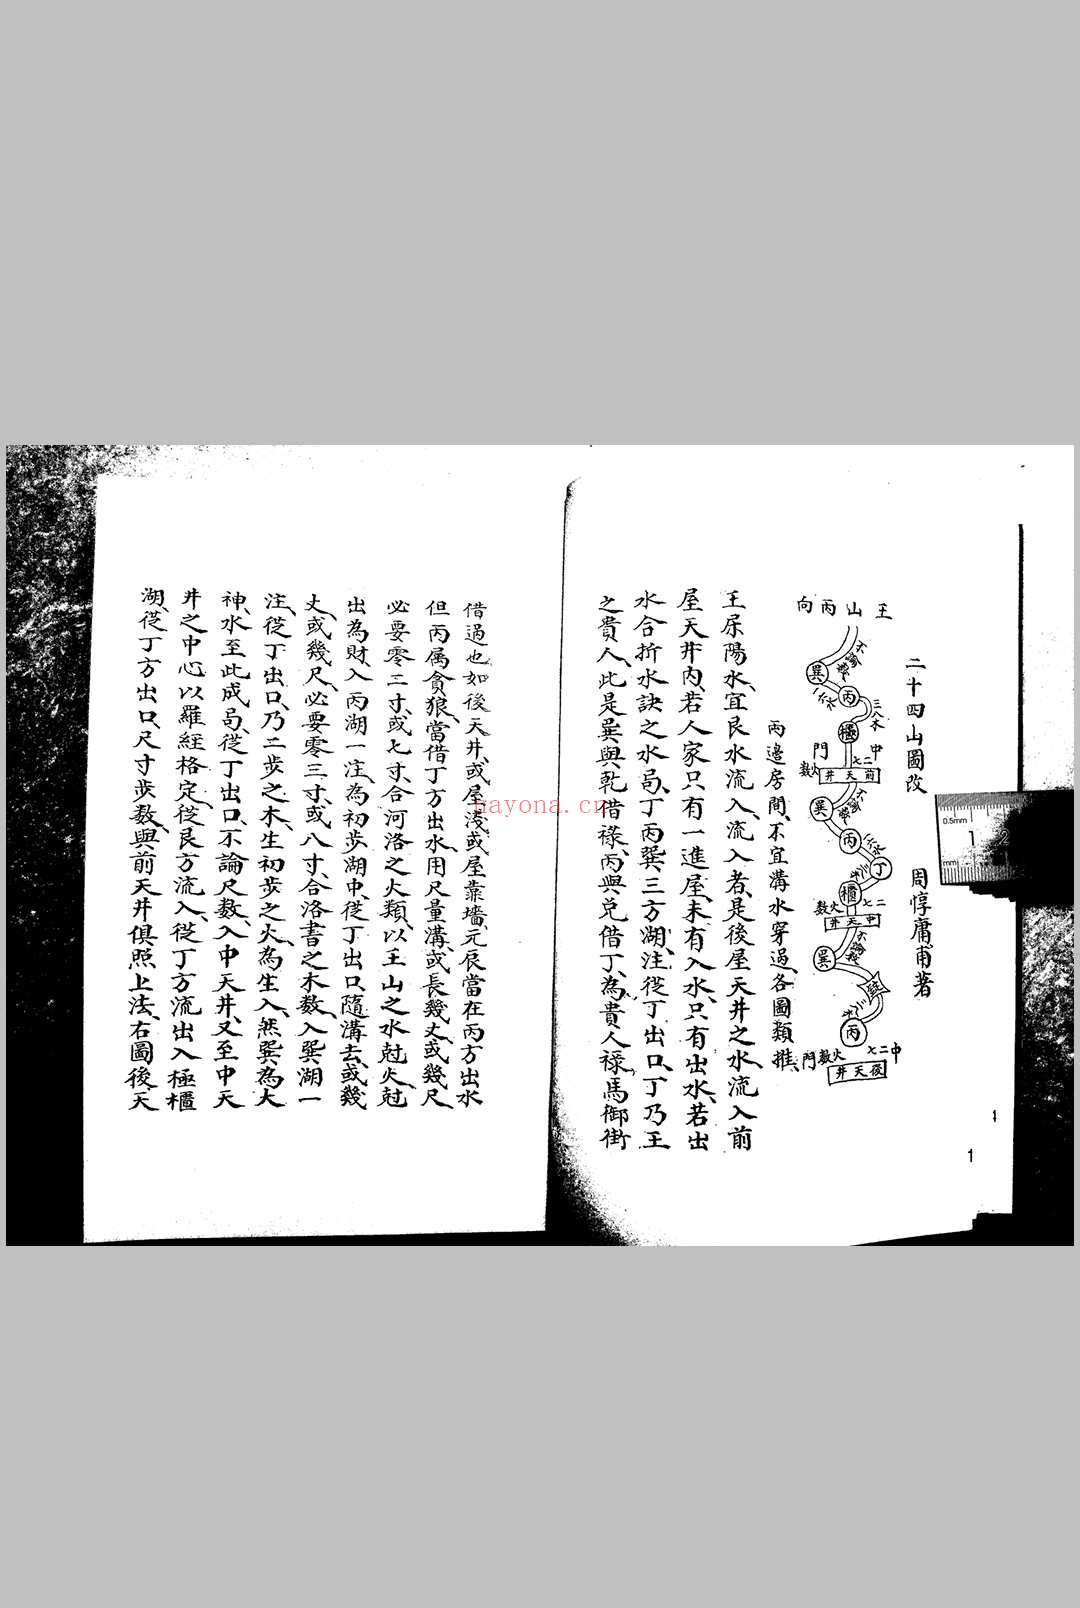 二十四山圖改　周惇庸甫著
壬山丙向
不論數
巽
一六水
丙
三八木
極
中
門
二七
火數
前天井
不論數
巽
丙
一六水
丁
櫃
二七
火數
中天井
不論數
巽
丙
中二七火數門
後天井
兩邊房間、不宜溝水穿過、各圖類推、
王屎陽水、宜艮水流入、流入者、是後屋天井之水、流入前
屋天井內、若人家只有一進屋、未有入水、只有出水、若出
水合折水訣之水局、丁丙巽三方湖、注從丁出口、丁乃王
之貴人、此是巽與乾借祿、丙與兌借丁、為貴人祿馬御街
借過也、如後天井、或屋淺、或屋靠墻、元辰當在丙方出水
但丙属貪狼、當借丁方出水、用尺量溝、或長幾丈、或幾尺、
必要零二寸、或七寸、合河洛之火類、以王山之水尅火、尅
出為財、入丙湖一注、為初步湖中、從丁出口、隨溝去、或幾
丈、或幾尺、必要零三寸、或八寸、合洛書之木数、入巽湖一
注、從丁出口、乃二步之木、生初步之火、為生入、然巽為大
神、水至此成局、從丁出口、不論尺数、入中天井、又至中天
井之中心、以羅經格定、從艮方流入、從丁方流出、入極櫃
湖、從丁方出口、尺寸步数、與前天井俱照上法、右圖後天
nayona.cn
0.5mm
1 2
mm
1